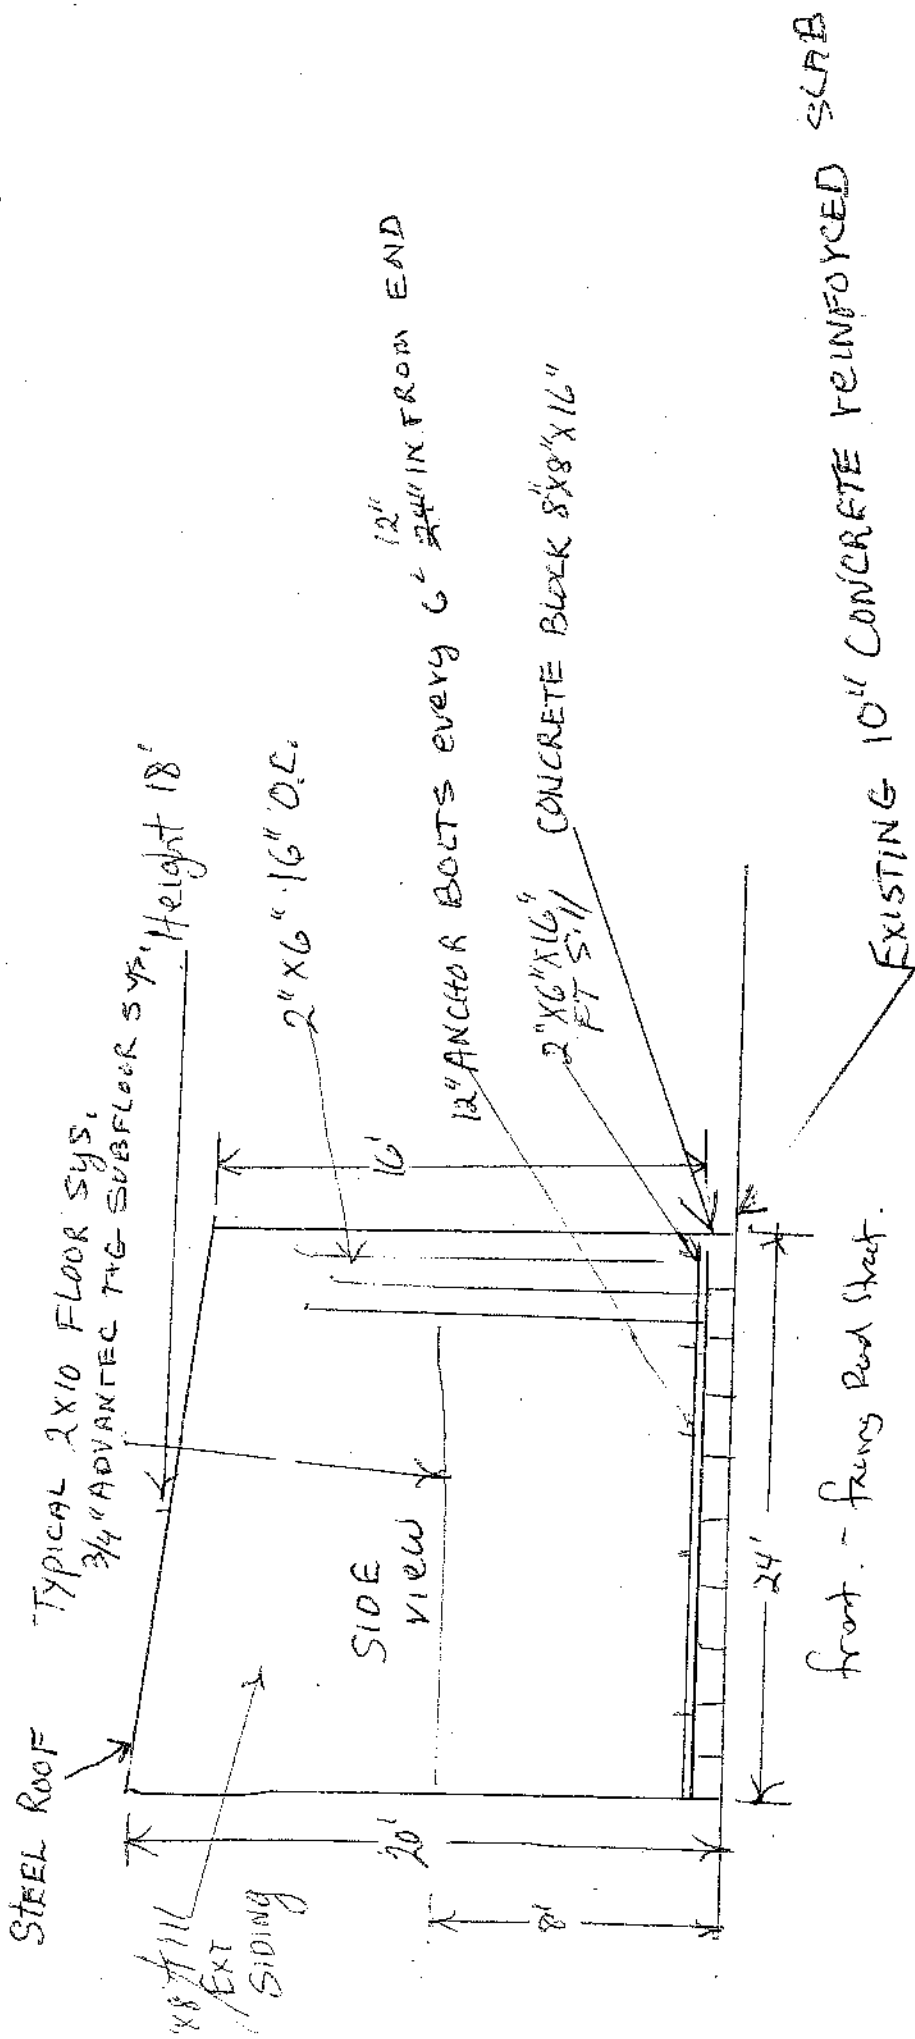 STEEL ROOF
TYPICAL 2X10 FLOOR SYS.
3/4" ADVANTEC T+G SUBFLOOR SYS.
Height 18'
2"X6" 16" O.C.
12"
12" ANCHOR BOLTS every 6' 24" IN FROM END
2"X6"X16'
PT Sill
CONCRETE BLOCK 8"X8"X16"
EXISTING 10" CONCRETE reINFORCED SLAB
X8' T111
EXT
SIDING
SIDE
VIEW
16'
20'
8'
24'
front. - facing Street.